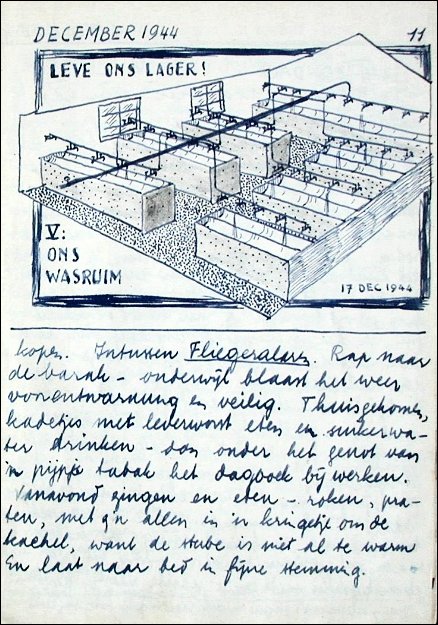 DECEMBER 1944
11
LEVE ONS LAGER!
V:
ONS
WASRUIM
17 DEC 1944
kopen. Intussen Fliegeralarm. Rap naar
de barak – onderwijl blaast het weer
voorentwarnung en veilig. Thuisgekomen,
kadetjes met leverworst eten en suikerwa-
ter drinken – dan onder het genot van
'n pijpje tabak het dagboek bij werken.
Vanavond zingen en eten – roken, pra-
ten, met z'n allen in 'n kringetje om de
kachel, want de stube is niet al te warm
En laat naar bed in fijne stemming.